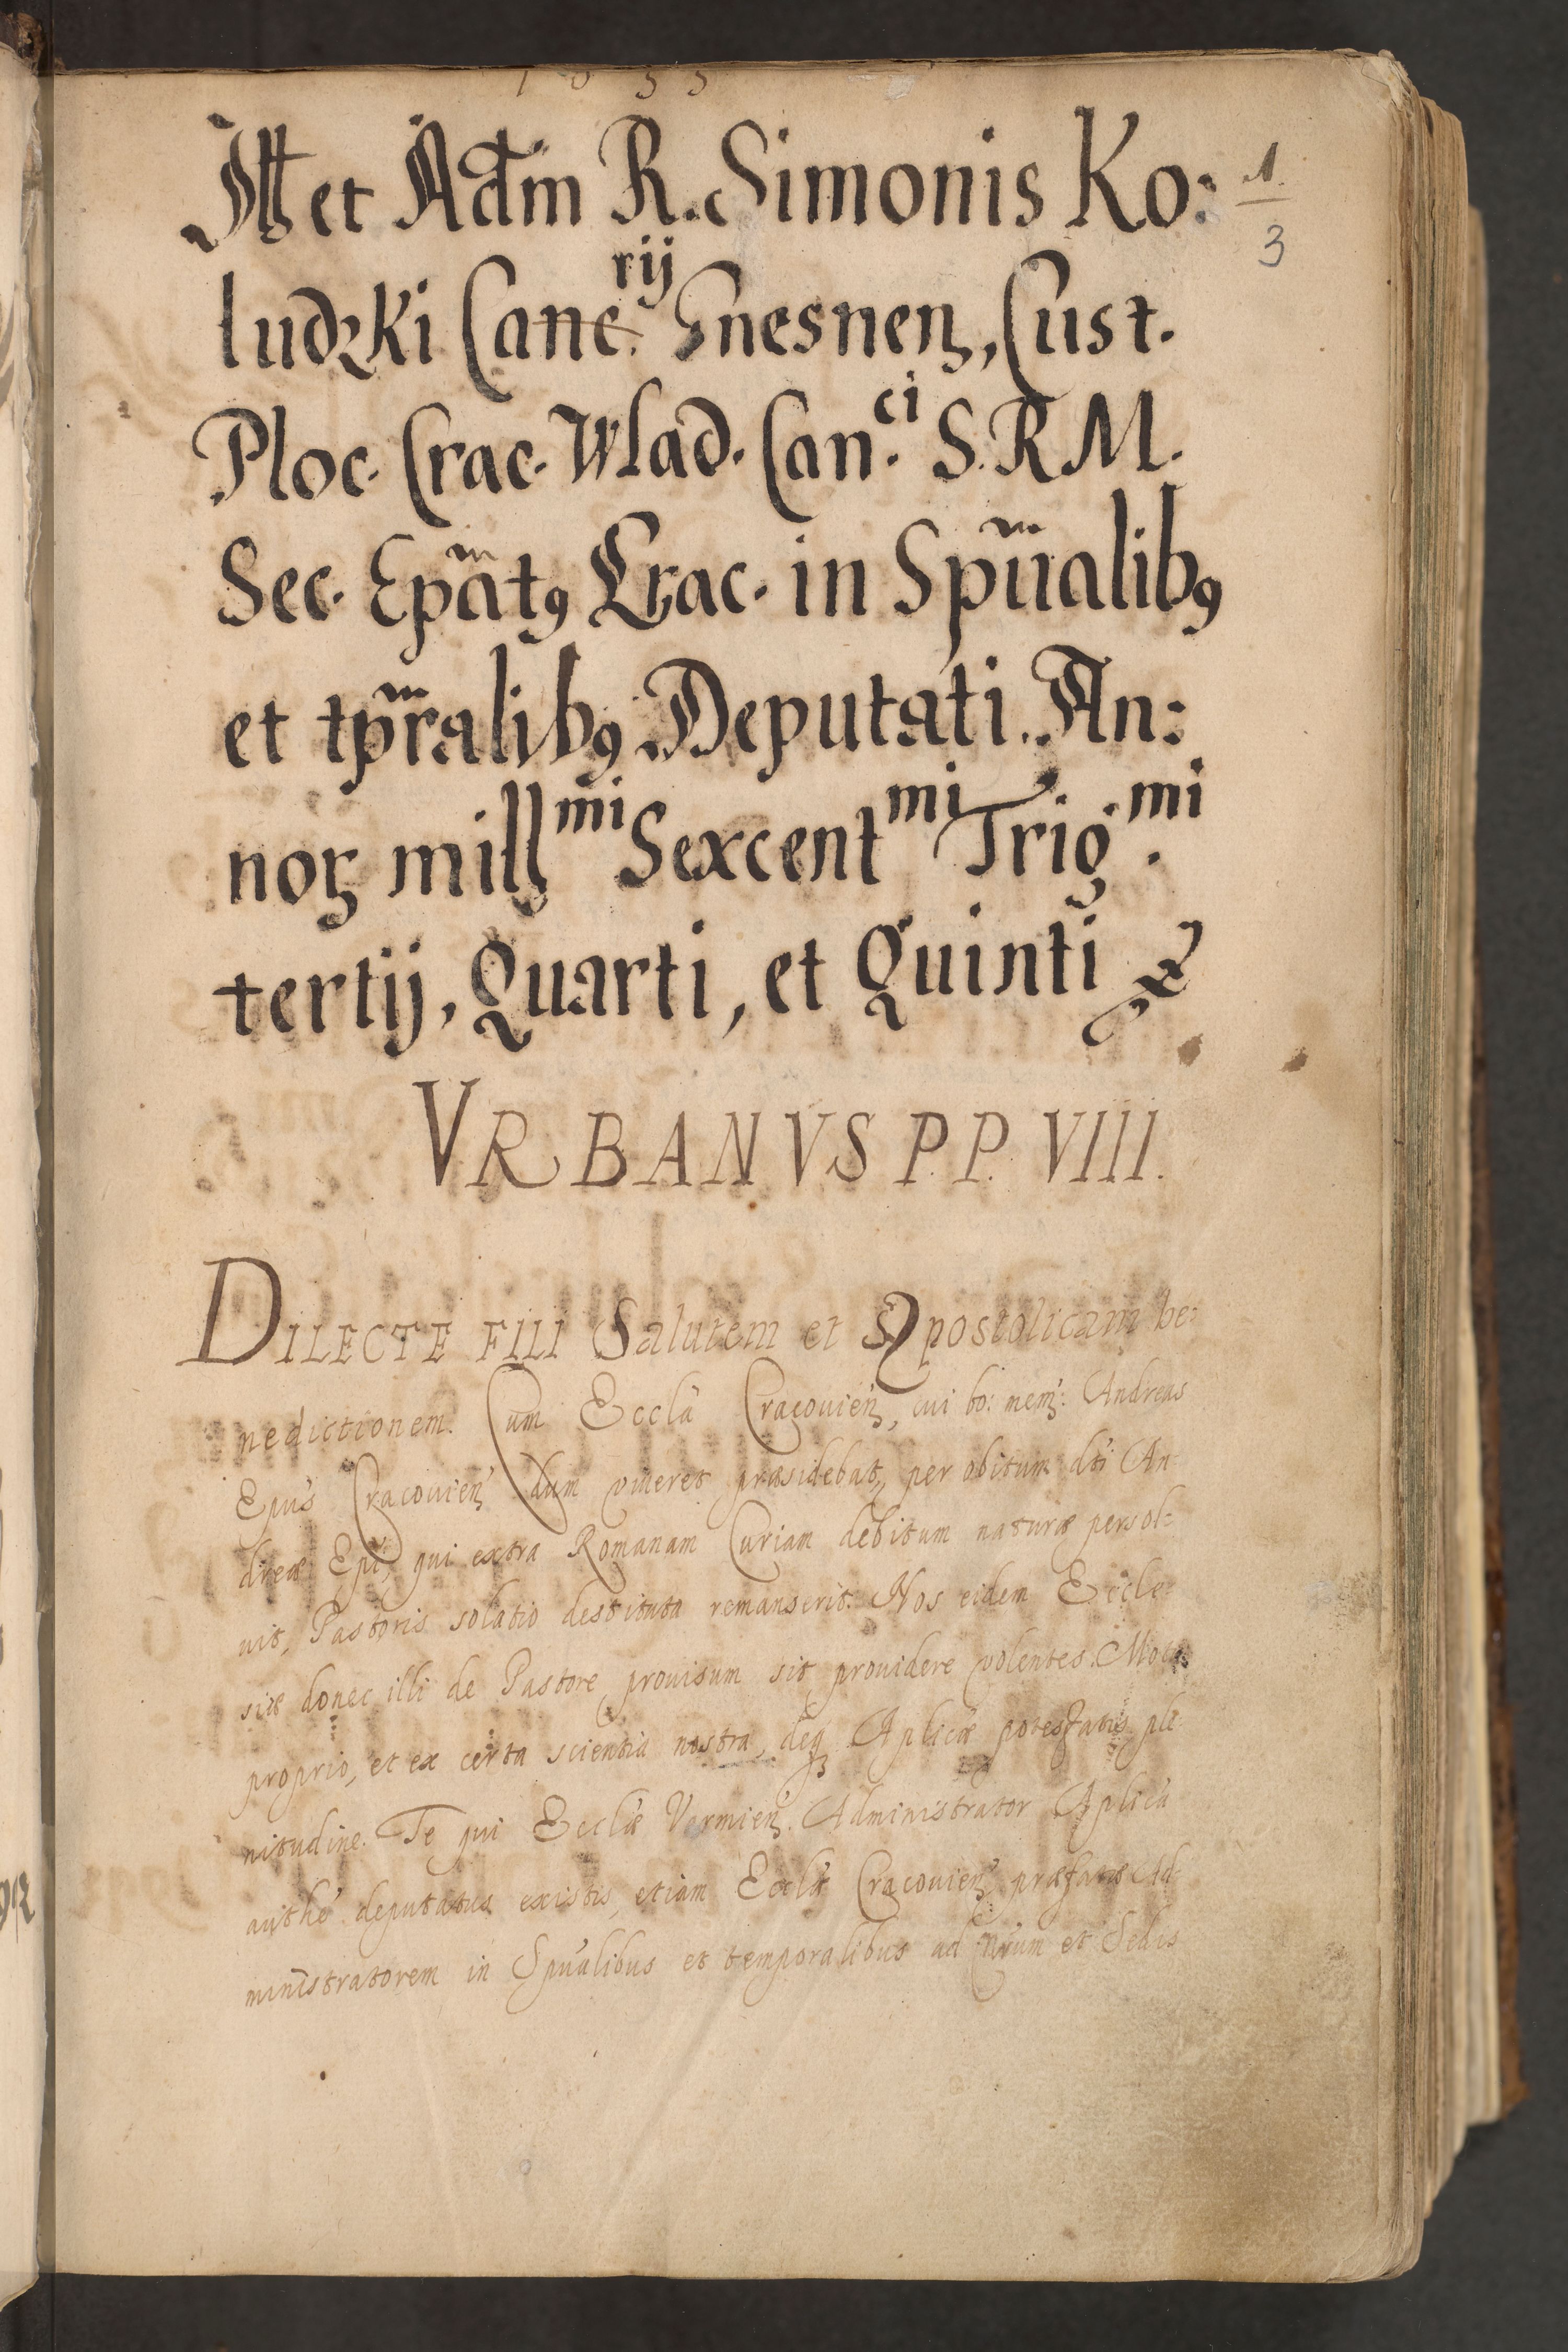 1633
Ill et Adm R. Simonis Ko:
1
3
ludzki Canc.rij Gnesnen, Cust.
Ploc. Crac. Wlad. Can.ci S.R.M.
Sec. Epatꝰ Crac. in Spũalibꝰ
et tp̃ralibꝰ Deputati. An:
noꝝ millmi Sexcentmi Trig.mi
tertij, Quarti, et Quinti
VRBANVS P.P. VIII.
DILECTE FILI Salutem et Apostolicam be:
nedictionem. Cum Eccla Cracouien, cui bo: mem: Andreas
Epus Cracouien dum viueret præsidebat, per obitum dti An
dreæ Epi, qui extra Romanam Curiam debitum naturæ persol:
uit, Pastoris solatio destituta remanserit. Nos eidem Eccle:
siæ donec illi de Pastore prouisum sit prouidere volentes. Motu
proprio, et ex certa scientia nostra, deqꝫ Aplicæ potestatis ple
nitudine. Te qui Ecclæ Varmien. Administrator Aplica
authe deputatus existis, etiam Ecclæ Cracouien præfatæ Ad:
ministratorem in Spualibus et temporalibus ad nrum et Sedis